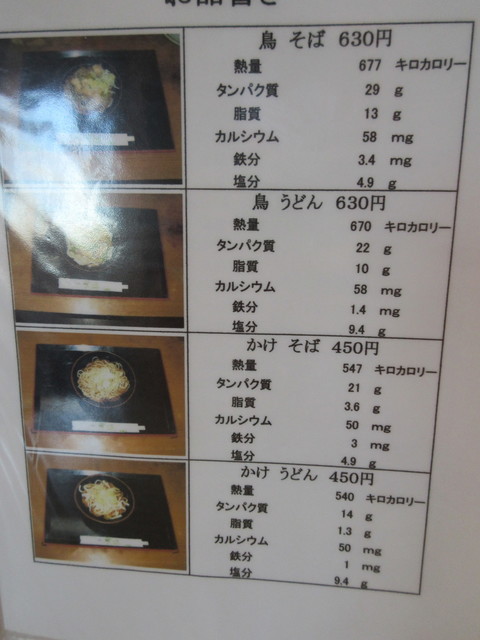 お品書き
鳥 そば 630円
熱量 677 キロカロリー
タンパク質 29 g
脂質 13 g
カルシウム 58 mg
鉄分 3.4 mg
塩分 4.9 g
鳥 うどん 630円
熱量 670 キロカロリー
タンパク質 22 g
脂質 10 g
カルシウム 58 mg
鉄分 1.4 mg
塩分 9.4 g
かけ そば 450円
熱量 547 キロカロリー
タンパク質 21 g
脂質 3.6 g
カルシウム 50 mg
鉄分 3 mg
塩分 4.9 g
かけ うどん 450円
熱量 540 キロカロリー
タンパク質 14 g
脂質 1.3 g
カルシウム 50 mg
鉄分 1 mg
塩分 9.4 g